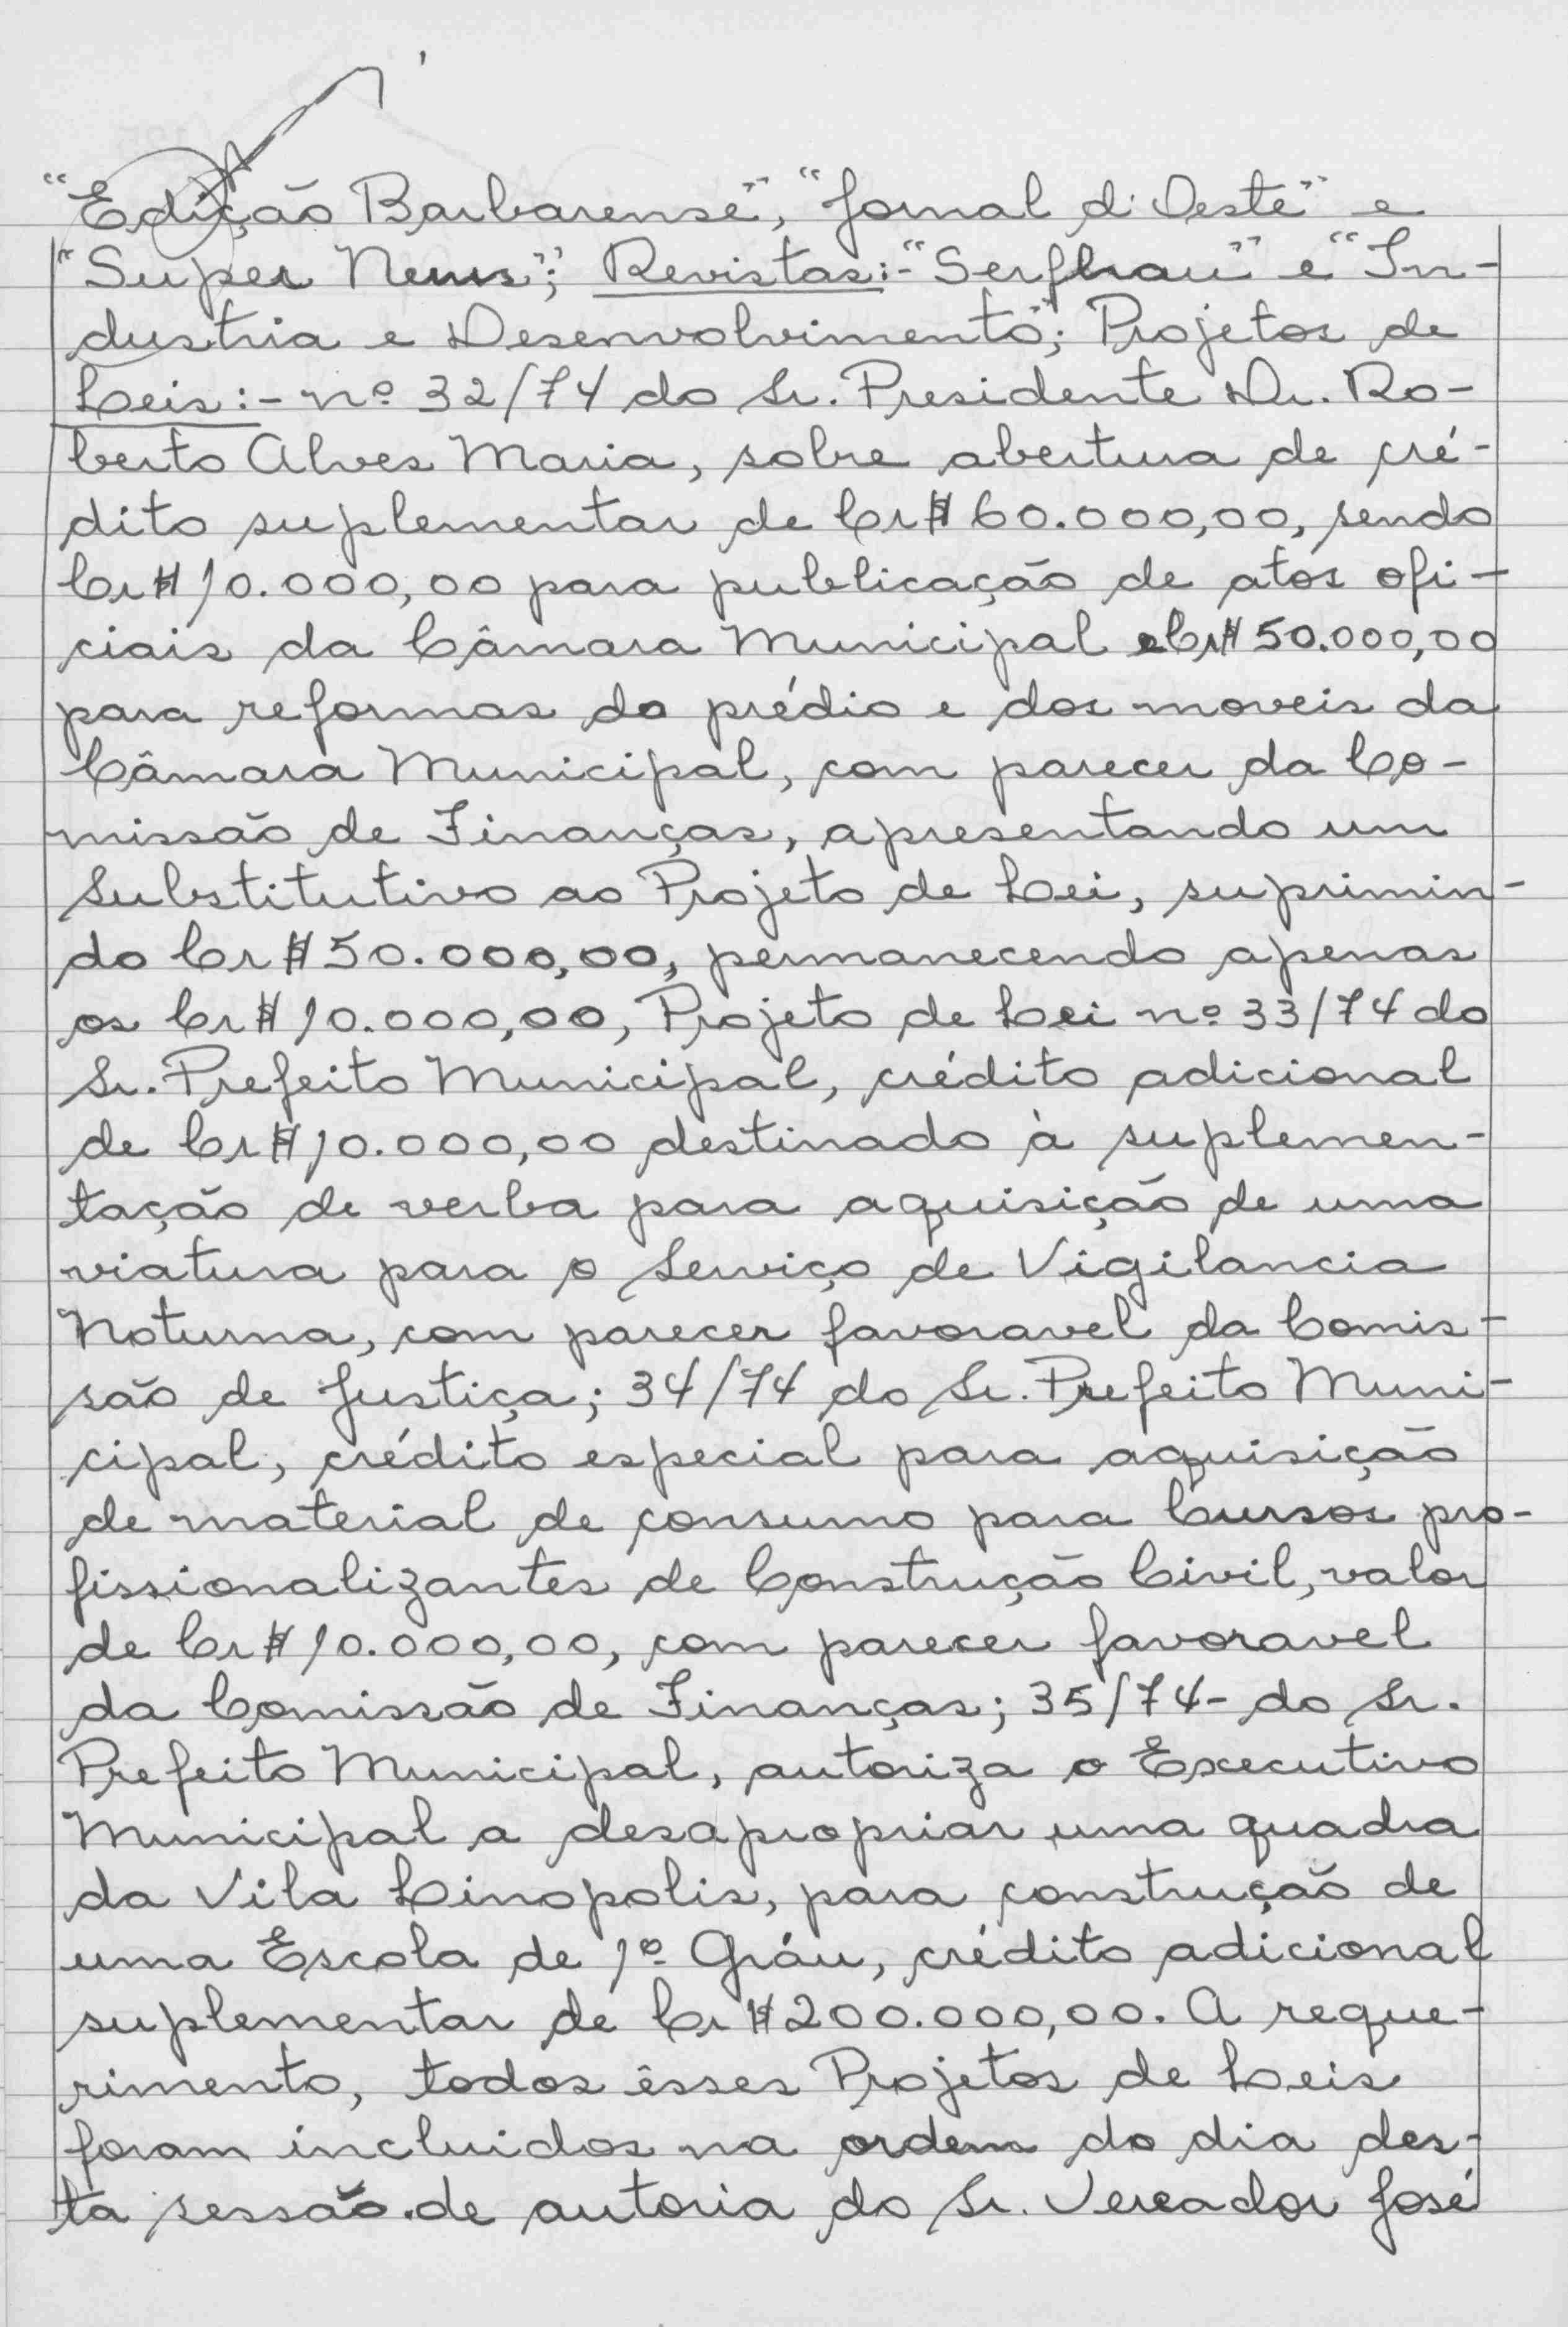 "Edição Barbarense", "Jornal d'Oeste" e
"Super News"; Revistas:- "Serfhau" e "In-
dustria e Desenvolvimento"; Projetos de
Leis:- nº 32/74 do Sr. Presidente Dr. Ro-
berto Alves Maria, sobre abertura de cré-
dito suplementar de Cr$ 60.000,00, sendo
Cr$ 10.000,00 para publicação de atos ofi-
ciais da Câmara Municipal e Cr$ 50.000,00
para reformas do prédio e dos moveis da
Câmara Municipal, com parecer da Co-
missão de Finanças, apresentando um
Substitutivo ao Projeto de Lei, suprimin-
do Cr$ 50.000,00, permanecendo apenas
os Cr$ 10.000,00, Projeto de Lei nº 33/74 do
Sr. Prefeito Municipal, crédito adicional
de Cr$ 10.000,00 destinado à suplemen-
tação de verba para aquisição de uma
viatura para o Serviço de Vigilancia
Noturna, com parecer favoravel da Comis-
são de Justiça; 34/74 do Sr. Prefeito Muni-
cipal, crédito especial para aquisição
de material de consumo para Cursos pro-
fissionalizantes de Construção Civil, valor
de Cr$ 10.000,00, com parecer favoravel
da Comissão de Finanças; 35/74- do Sr.
Prefeito Municipal, autoriza o Executivo
Municipal a desapropriar uma quadra
da Vila Linopolis, para construção de
uma Escola de 1º Gráu, crédito adicional
suplementar de Cr$ 200.000,00. A reque-
rimento, todos êsses Projetos de Leis
foram incluidos na ordem do dia des-
ta sessão. de autoria do Sr. Vereador José